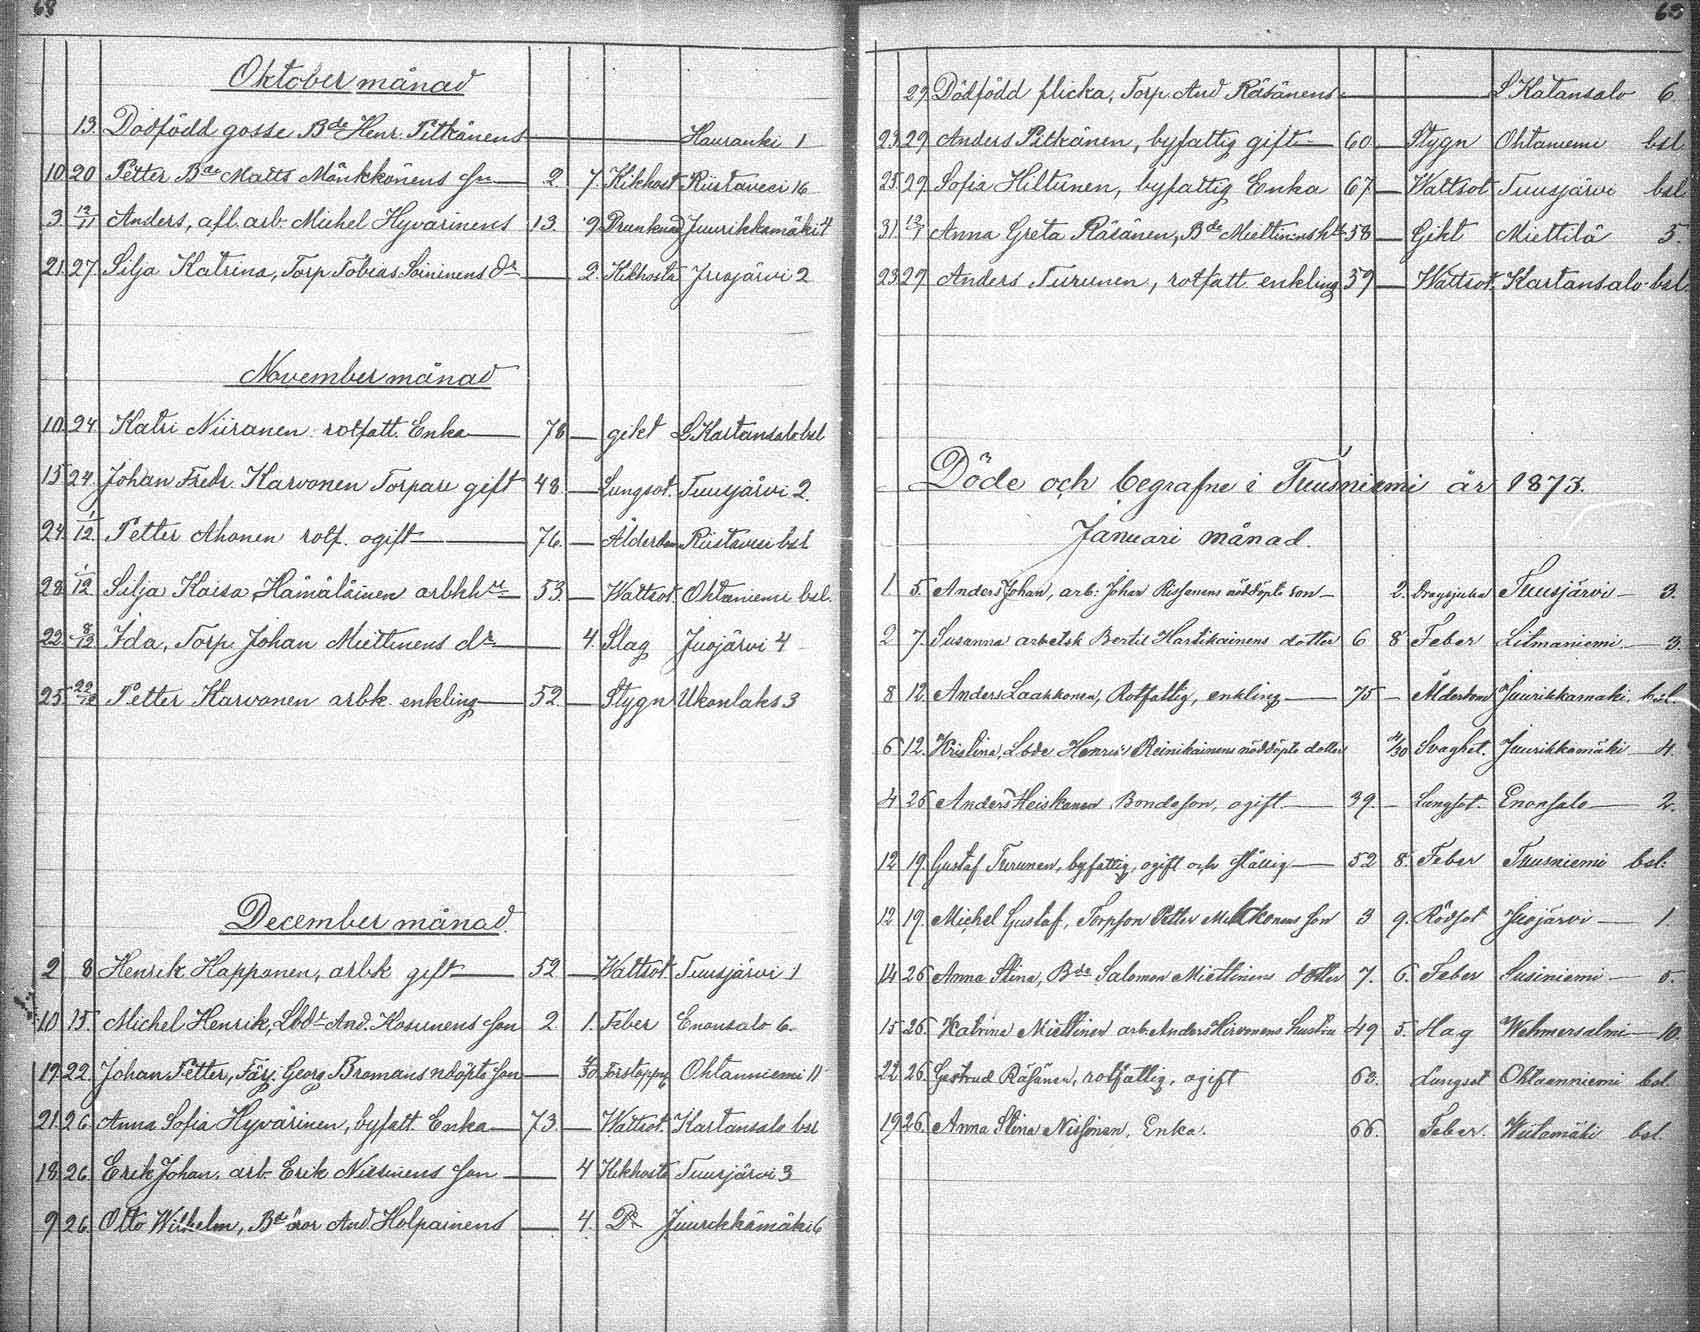 68
Oktober månad
13. Dödfödd gosse Bde Henr. Pitkänens Hauranki 1
10. 20 Petter Bde Matts Mönkkönens Son 2 7. Kikhost Riistavesi 16
3. 12/11 Anders, afl. arb. Michel Hyvärinens 13. 9 Drunknad Juurikkamäki 4
21. 27. Silja Katrina, Torp. Tobias Soininens dr 2. Kikhosta Juojärvi 2
November månad
10. 24. Katri Niiranen rotfatt. Enka 76 gikt L Kartansalo bsl
15 24. Johan Fredr. Karvonen Torpare gift 48. Lungsot. Tuusjärvi 2.
24. 1/12. Petter Ahonen rotf. ogift 76. Ålderdom Riistavesi bsl
28. 1/12 Silja Kaisa Hämäläinen arbkhu 53. Wattsot. Ohtaniemi bsl.
22. 8/12 Ida, Torp. Johan Miettinens dr 4. Slag Juojärvi 4
25. 22/12 Petter Karvonen arbk. enkling 52. Stygn Ukonlaks 3
December månad.
2 8 Henrik Happonen, arbk gift 52 Wattsot. Tuusjärvi 1
10. 15. Michel Henrik, Lbde And. Kosunens Son 2. 1. Feber Enonsalo 6.
19. 22. Johan Petter, Färg. Georg Bromans ndöpte Son 4/30 Förstoppng Ohtanniemi 11
21. 26. Anna Sofia Hyvärinen, byfatt. Enka 73. Wattsot. Kartansalo bsl
18. 26. Erik Johan, arb. Erik Nissinens Son 4 Kikhosta Tuusjärvi 3
9 26. Otto Wilhelm, Bde bror And. Holpainens 4. Do Juurikkämäki 6
29. Dödfödd flicka, Torp. And Räsänens L Katansalo 6
23. 29 Anders Pitkänen, byfattig gift 60. Stygn Ohtaniemi bsl
25. 29. Sofia Hiltunen, byfattig Enka 67 Wattsot Tuusjärvi bsl
31 12/1 Anna Greta Räsänen, Bde Miettinens htu 58 Gikt Miettilä 5.
23. 29 Anders Turunen, rotfatt. enkling 59 Wattsot. Kartansalo bsl.
Döde och begrafne i Tuusniemi år 1873.
Januari månad.
1 5. Anders Johan, arb: Johan nöddöpte son 2. Tuusjärvi 3.
2 7. Susanna arbetsk Bertil Hartikainens dotter 6 8 Feber Litmaniemi 3.
8 12. Anders Laakkonen, Rotfattig, enkling 75 Ålderdom Juurikkamäki. bsl.
6 12. Kristina, Lbde Henrik Reinikainens nöddöpte dotter 4/30 Svaghet. Juurikkamäki 4.
4 26 Anders Heiskanen Bondeson, ogift 39. Lungsot. Enonsalo 2.
12 19. Gustaf Turunen, byfattig, ogift och 52 8. Feber Tuusniemi bsl:
12 19. Michel Gustaf, Torpson Petter son 3 9. Rödsot Juojärvi 1.
14 26 Anna Stina, Bde Salomon Miettinens dotter 7. 6. Feber Susiniemi 5.
15 26. Katrina Miettinen arb. Anders Hirvonens hustru 49 5. Hag Wehmersalmi 10.
22 26. Gertrud Räsänen, rotfattig, ogift 63. Lungsot Ohtaanniemi bsl.
19 26. Anna Stina Nissinen, Enka. 66. Feber. Wiitamäki bsl.